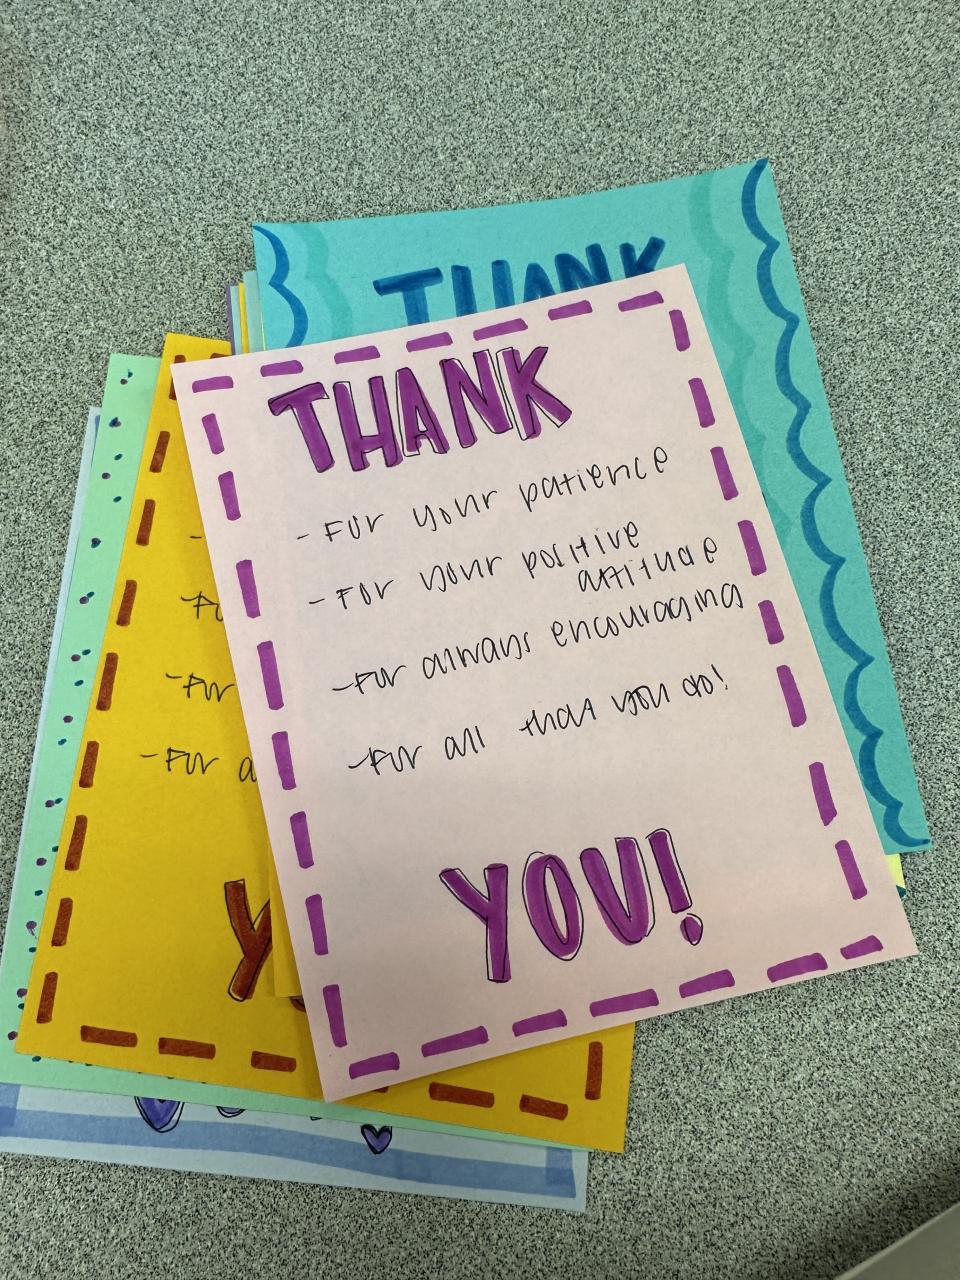 THANK
THANK
- For your patience
- For your positive
attitude
- For always encouraging
- For all that you do!
YOU!
- For
- For
- For a
Y